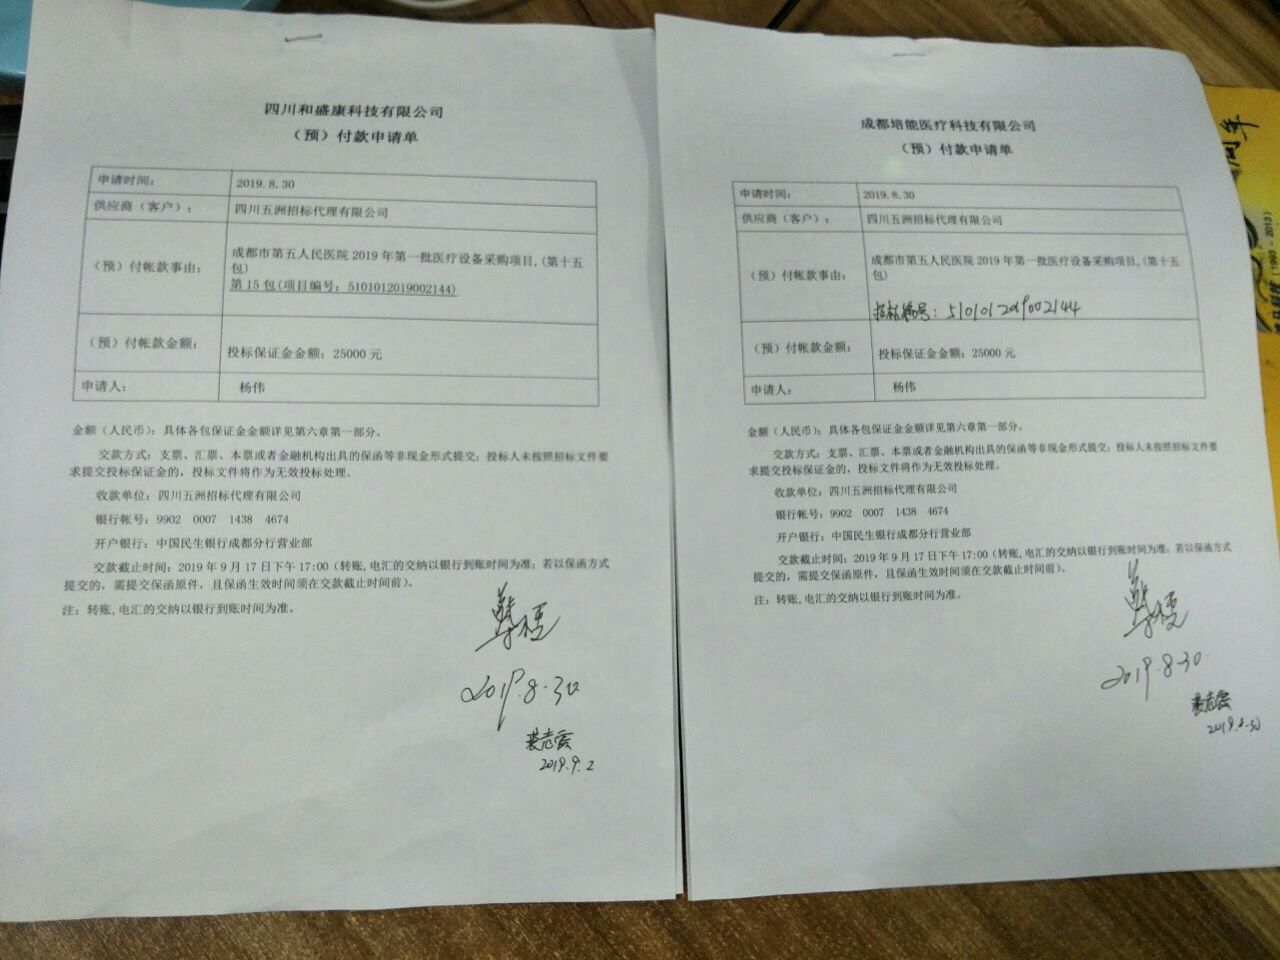 四川和盛康科技有限公司
（预）付款申请单
申请时间：
2019.8.30
供应商（客户）：
四川五洲招标代理有限公司
（预）付帐款事由：
成都市第五人民医院 2019 年第一批医疗设备采购项目,(第十五
包)
第 15 包(项目编号：5101012019002144)
（预）付帐款金额：
投标保证金金额：25000 元
申请人：
杨伟
金额（人民币）：具体各包保证金金额详见第六章第一部分。
交款方式：支票、汇票、本票或者金融机构出具的保函等非现金形式提交；投标人未按照招标文件要
求提交投标保证金的，投标文件将作为无效投标处理。
收款单位：四川五洲招标代理有限公司
银行帐号：9902 0007 1438 4674
开户银行：中国民生银行成都分行营业部
交款截止时间：2019 年 9 月 17 日下午 17:00（转账,电汇的交纳以银行到账时间为准；若以保函方式
提交的，需提交保函原件，且保函生效时间须在交款截止时间前）。
注：转账,电汇的交纳以银行到账时间为准。
2019.8.30
2019.9.2
成都培能医疗科技有限公司
（预）付款申请单
申请时间：
2019.8.30
供应商（客户）：
四川五洲招标代理有限公司
（预）付帐款事由：
成都市第五人民医院 2019 年第一批医疗设备采购项目,(第十五
包)
招标编号：5101012019002144
（预）付帐款金额：
投标保证金金额：25000 元
申请人：
杨伟
金额（人民币）：具体各包保证金金额详见第六章第一部分。
交款方式：支票、汇票、本票或者金融机构出具的保函等非现金形式提交；投标人未按照招标文件要
求提交投标保证金的，投标文件将作为无效投标处理。
收款单位：四川五洲招标代理有限公司
银行帐号：9902 0007 1438 4674
开户银行：中国民生银行成都分行营业部
交款截止时间：2019 年 9 月 17 日下午 17:00（转账,电汇的交纳以银行到账时间为准；若以保函方式
提交的，需提交保函原件，且保函生效时间须在交款截止时间前）。
注：转账,电汇的交纳以银行到账时间为准。
2019.8.30
2019.8.30
周年
(1993 - 2013)